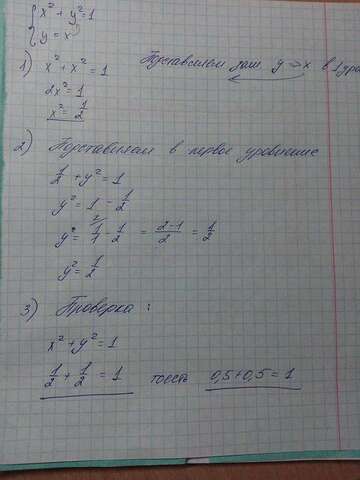 x² + y² = 1
y = x
1) x² + x² = 1 Подставляем y => x в 1 ура
2x² = 1
x² = 1/2
2) Подставляем в первое уровнение
1/2 + y² = 1
y² = 1 - 1/2
y² = 1/1 - 1/2 = 2-1/2 = 1/2
y² = 1/2
3) Проверка :
x² + y² = 1
1/2 + 1/2 = 1 тоесть 0,5+0,5 = 1